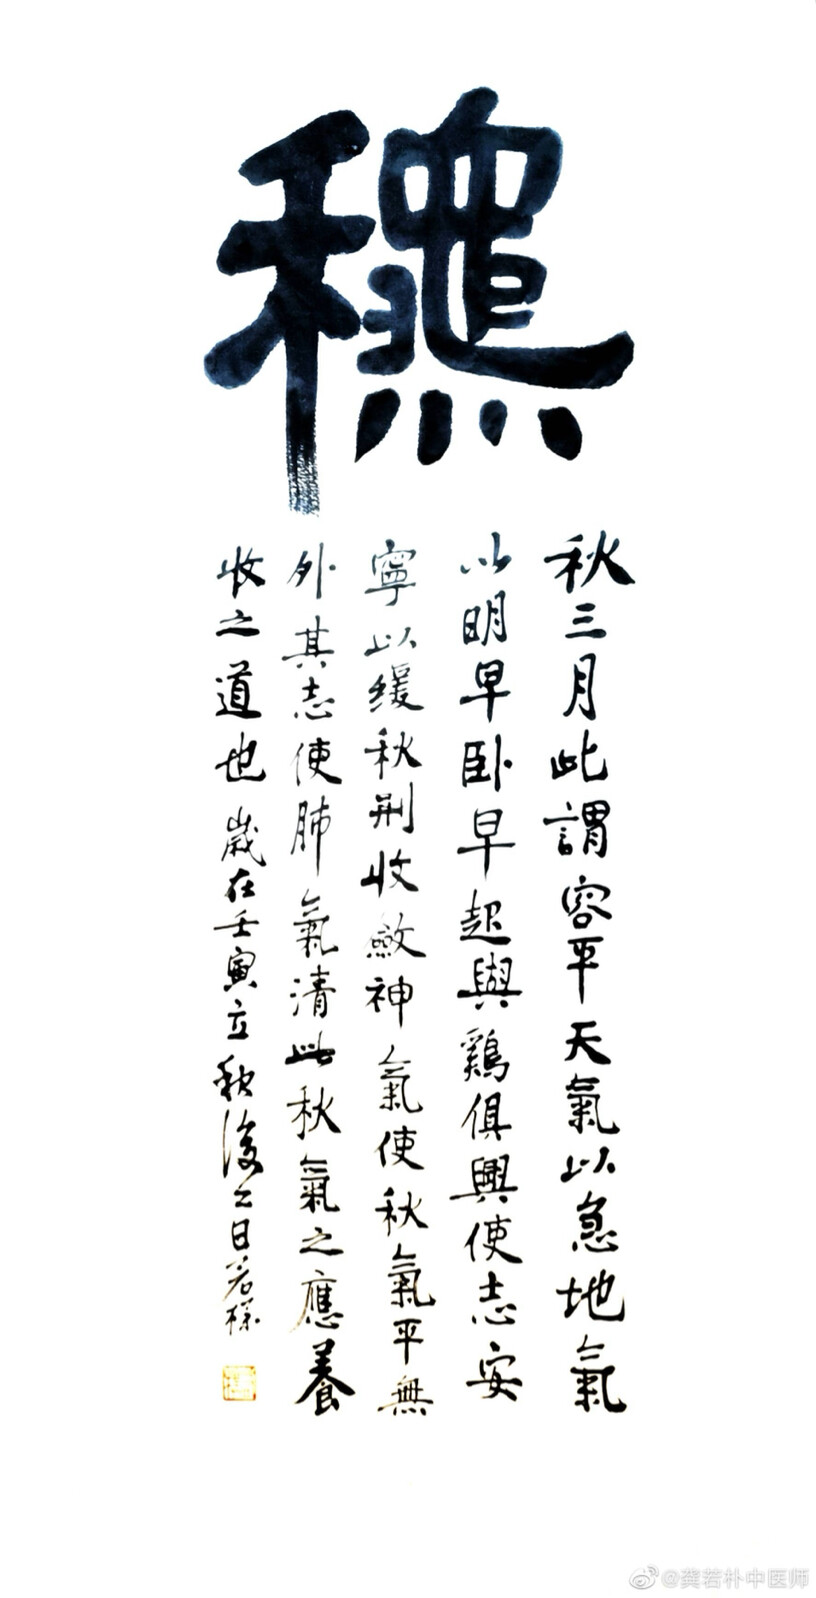 龝
秋三月此謂容平天氣以急地氣
以明早卧早起與鷄俱興使志安
寧以緩秋刑收斂神氣使秋氣平無
外其志使肺氣清此秋氣之應養
收之道也 歲在壬寅立秋後二日若樸
@龚若朴中医师